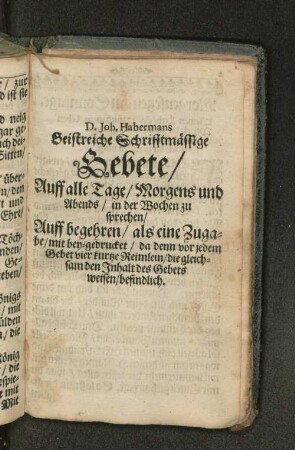 D. Joh. Habermans
Geistreiche Schrifftmässige
Gebete/
Auff alle Tage/Morgens und
Abends/ in der Wochen zu
sprechen/
Auff begehren/ als eine Zuga-
be/mit bey-gedrucket/ da denn vor jedem
Gebet vier kurtze Reimlein/die gleich-
sam den Inhalt des Gebets
weisen/befindlich.